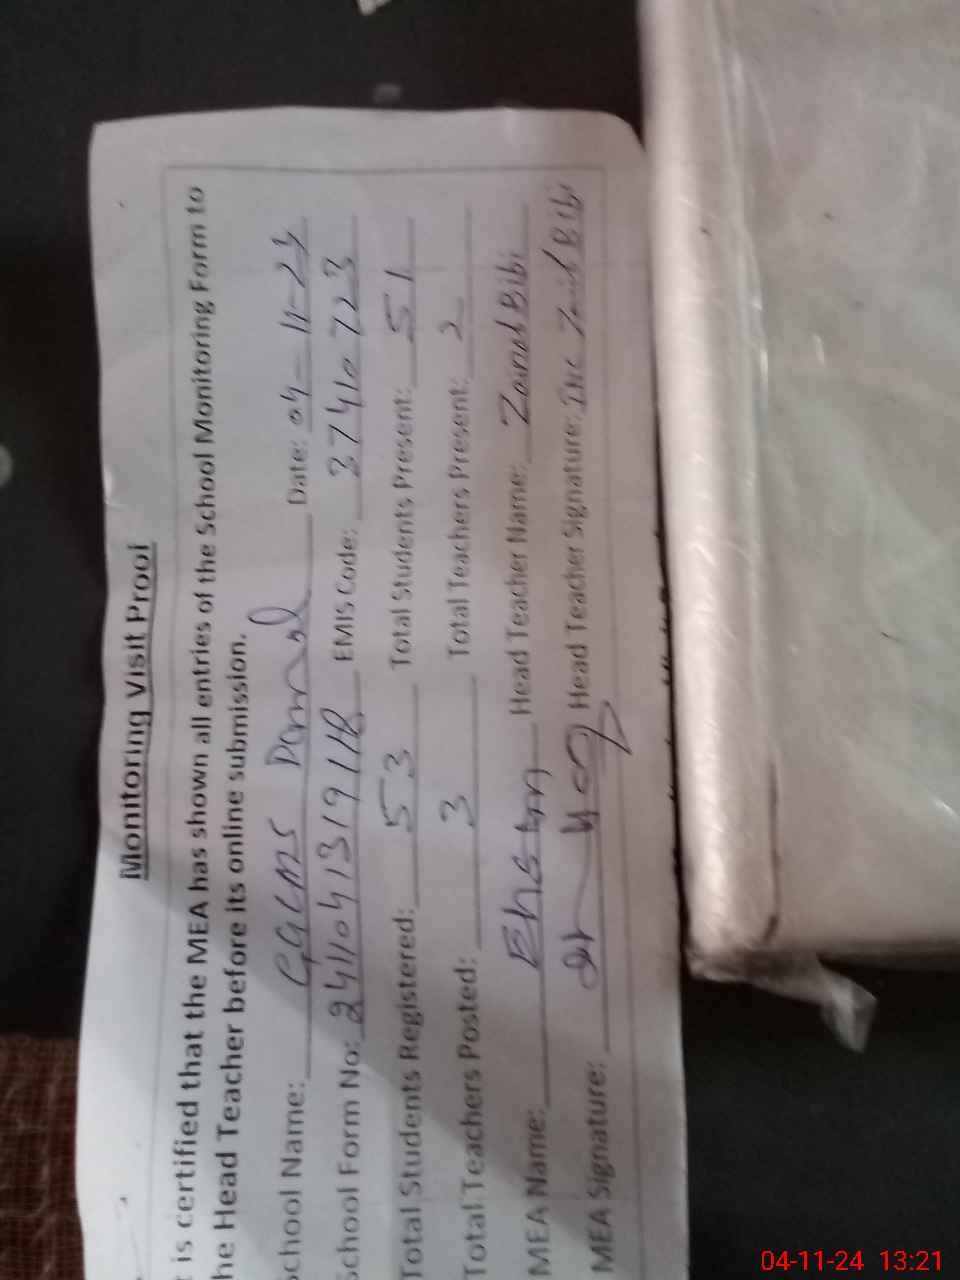 Monitoring Visit Proof
t is certified that the MEA has shown all entries of the School Monitoring Form to
he Head Teacher before its online submission.
School Name: GGCMS Date: 04-11-24
School Form No: EMIS Code: 37410723
Total Students Registered: 53 Total Students Present: 51
Total Teachers Posted: 3 Total Teachers Present: 2
MEA Name: Head Teacher Name: Zainab Bibi
MEA Signature: Head Teacher Signature: Bibi
04-11-24 13:21